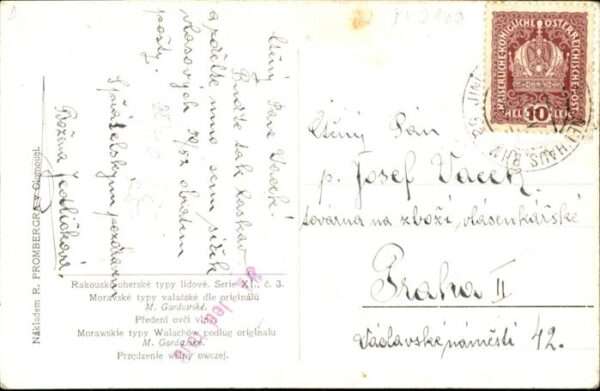 Ctěný Pane Vacek!
Buďte tak laskav
a pošlete mno sem síťek
vlasových 50/52 obratem
pošty.
S přátelským pozdravem
Božena Jedličková.
Nákladem R. PROMBERGRA v Olomouci.
Rakousko-uherské typy lidové. Serie XI., č. 3.
Moravské typy valašské dle originálu
M. Gardavské.
Předení ovčí vlny.
Morawskie typy Wałachów podług originału
M. Gardavské.
Przędzenie wełny owczej.
KAISERLICHE KÖNIGLICHE ÖSTERREICHISCHE POST
HELLER 10 HELLER
Ctěný Pán
p. Josef Vacek.
továrna na zboží vlásenkářské
Praha II
Václavské náměstí 42.